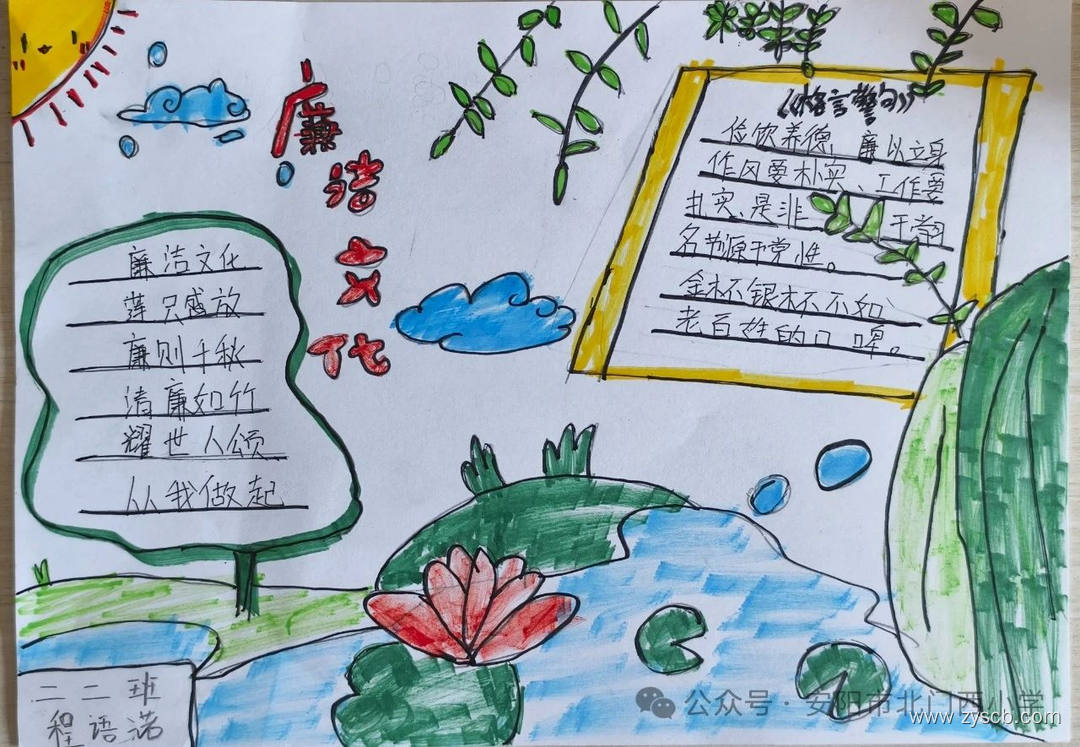 廉洁文化
《格言警句》
俭饮养德,廉以立身
作风要朴实、工作要
扎实、是非 于常
名节源于党性。
金杯银杯不不如
老百姓的口碑。
廉洁文化
莲只感放
廉则千秋
清廉如竹
耀世人颂
从我做起
二二班
程语诺
公众号·安阳市北门西小学
www.zyscb.com